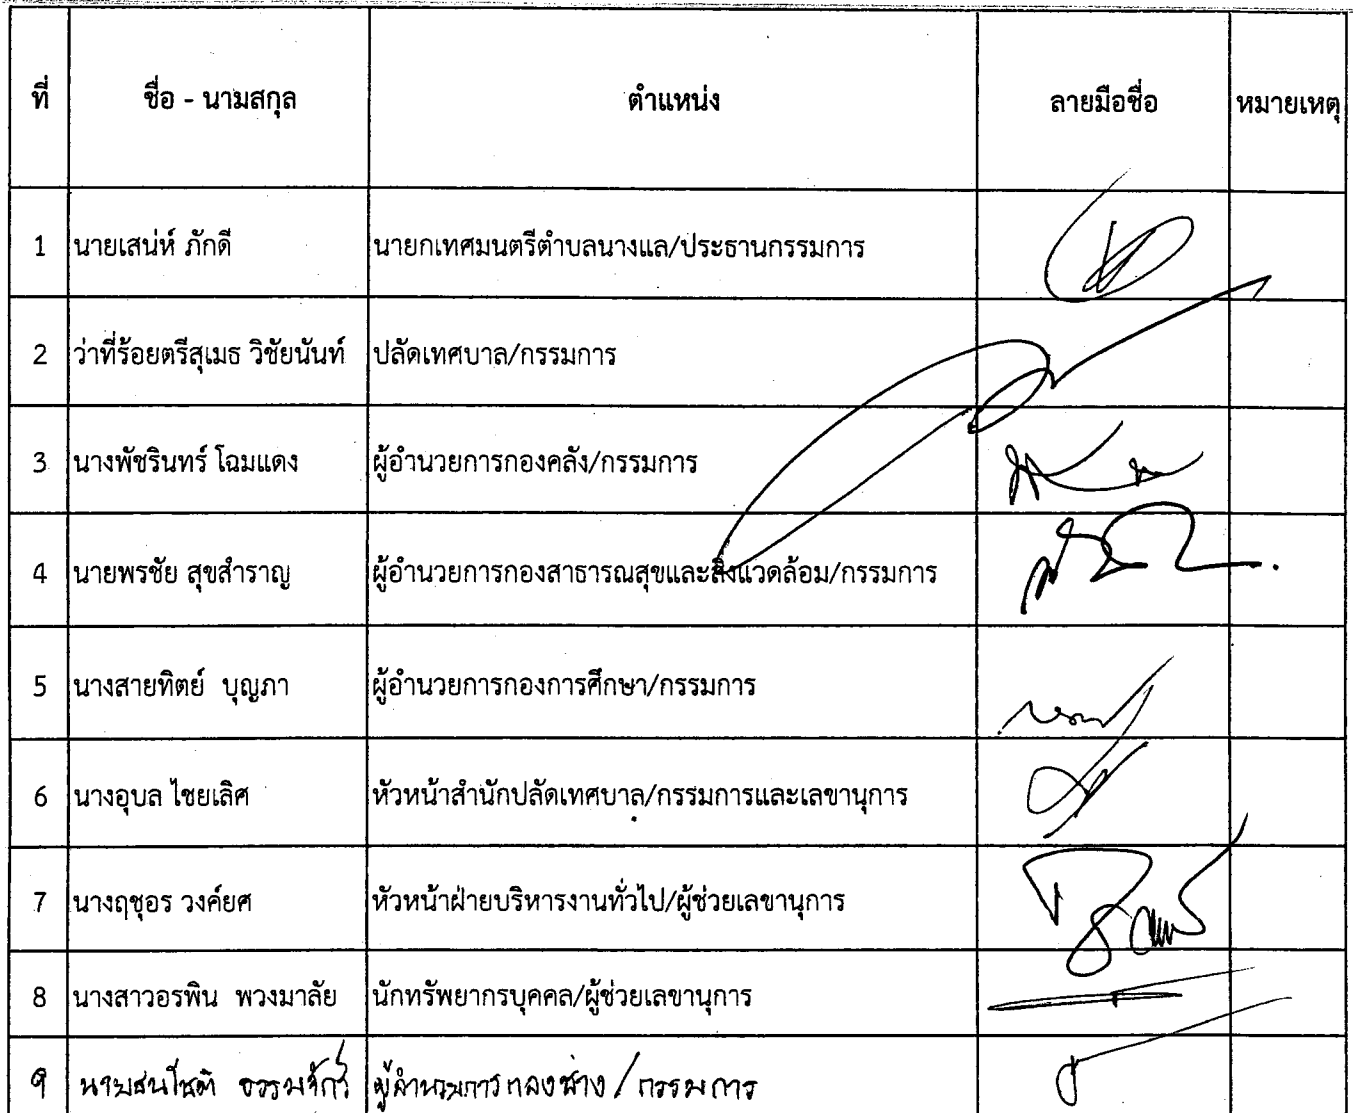 ที่ ชื่อ - นามสกุล ตำแหน่ง ลายมือชื่อ หมายเหตุ
1 นายเสน่ห์ ภักดี นายกเทศมนตรีตำบลนางแล/ประธานกรรมการ
2 ว่าที่ร้อยตรีสุเมธ วิชัยนันท์ ปลัดเทศบาล/กรรมการ
3 นางพัชรินทร์ โฉมแดง ผู้อำนวยการกองคลัง/กรรมการ
4 นายพรชัย สุขสำราญ ผู้อำนวยการกองสาธารณสุขและสิ่งแวดล้อม/กรรมการ
5 นางสายทิตย์ บุญภา ผู้อำนวยการกองการศึกษา/กรรมการ
6 นางอุบล ไชยเลิศ หัวหน้าสำนักปลัดเทศบาล/กรรมการและเลขานุการ
7 นางฤชุอร วงค์ยศ หัวหน้าฝ่ายบริหารงานทั่วไป/ผู้ช่วยเลขานุการ
8 นางสาวอรพิน พวงมาลัย นักทรัพยากรบุคคล/ผู้ช่วยเลขานุการ
9 ผู้อำนวยการกองช่าง / กรรมการ